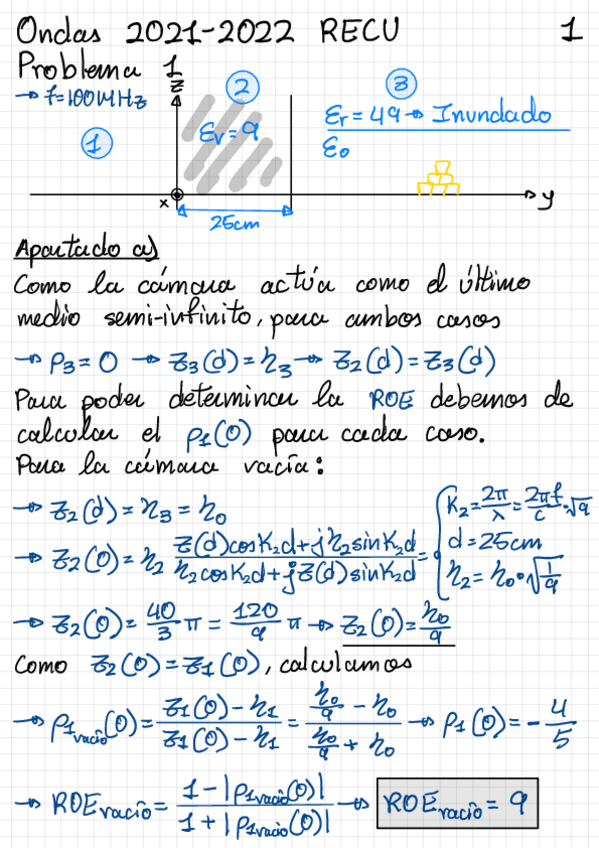 Ondas 2021-2022 RECU 1
Problema 1
→ f=100MHz
z
1
2
3
εr=9
εr=49→ Inundado
ε0
x
y
25cm
Apartado a)
Como la cámara actúa como el último
medio semi-infinito, para ambos casos
→ ρ3=0 → Z3(d)=η3→ Z2(d)=Z3(d)
Para poder determinar la ROE debemos de
calcular el ρ1(0) para cada caso.
Para la cámara vacía:
→ Z2(d)=η3=η0
→ Z2(0)=η2 Z(d)cosK2d+jη2sinK2d / η2cosK2d+jZ(d)sinK2d =
K2=2π/λ=2πf/c·√9
d=25cm
η2=η0·√1/9
→ Z2(0)=40/3 π=120/9 π→ Z2(0)=η0/9
Como Z2(0)=Z1(0), calculamos
→ ρ1vacío(0)=Z1(0)-η1 / Z1(0)-η1 = η0/9 - η0 / η0/9 + η0 → ρ1(0)=-4/5
→ ROEvacío= 1-|ρ1vacío(0)| / 1+|ρ1vacío(0)| → ROEvacío=9